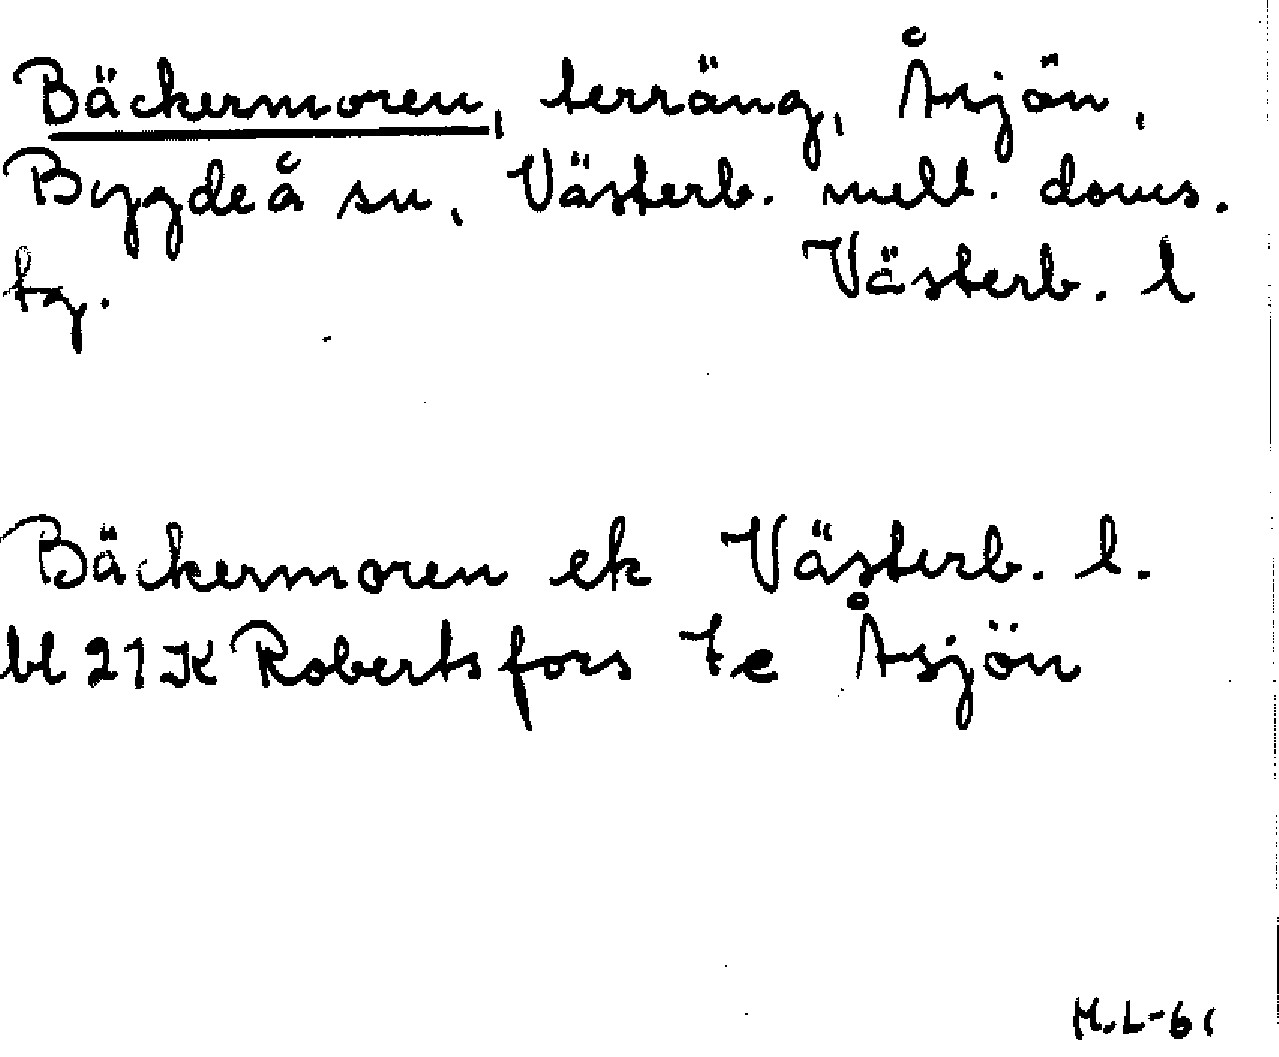 Bäckermoren, terräng, Åsjön,
Bygdeå sn, Västerb. mell. doms.
tg. Västerb. l
Bäckermoren ek Västerb. l.
bl 21K Robertsfors 7e Åsjön
M.L-61